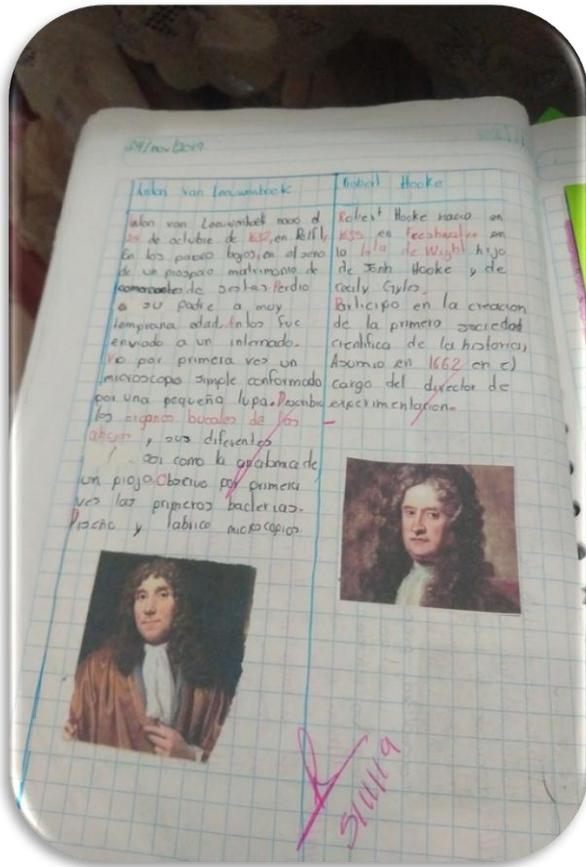 Anton van Leeuwenhoek
Anton van Leeuwenhoek nacio el
de octubre de 1632, en Delft,
En los paises bajos, en el seno
de un prospero matrimonio de
comerciante de sestas. Perdio
a su padre a muy
temprana edad. Anton fue
enviado a un internado.
Vio por primera ves un
microscopio simple conformado
por una pequeña lupa. Describe
los organos bucales de las
abejas, sus diferentes
asi como la anatomia de
un piojo. Observo por primera
ves las primeras bacterias.
Diseño y fabrico microscopios
Robert Hooke
Robert Hooke nacio en
1635 en en
la Isla de Wight hijo
de Jonh Hooke y de
Cecily Gyles.
Participo en la creacion
de la primera sociedad
cientifica de la historia,
Asumio en 1662 en el
cargo del director de
experimentacion.